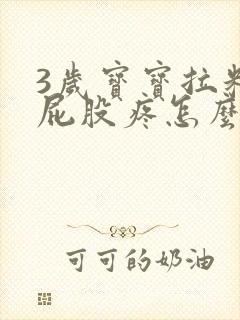 3歲寶寶拉
屁股疼怎麼
可可的奶油